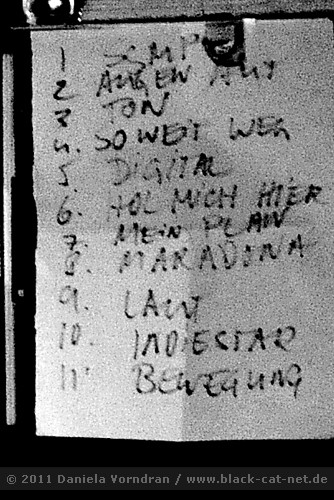 1
2 AUGEN AUF
3 TON
4. SO WEIT WEG
5. DIGITAL
6. HOL MICH HIER
7. MEIN PLAN
8. MARADONA
9. LAUT
10. INDIESTAR
11. BEWEGUNG
© 2011 Daniela Vorndran / www.black-cat-net.de